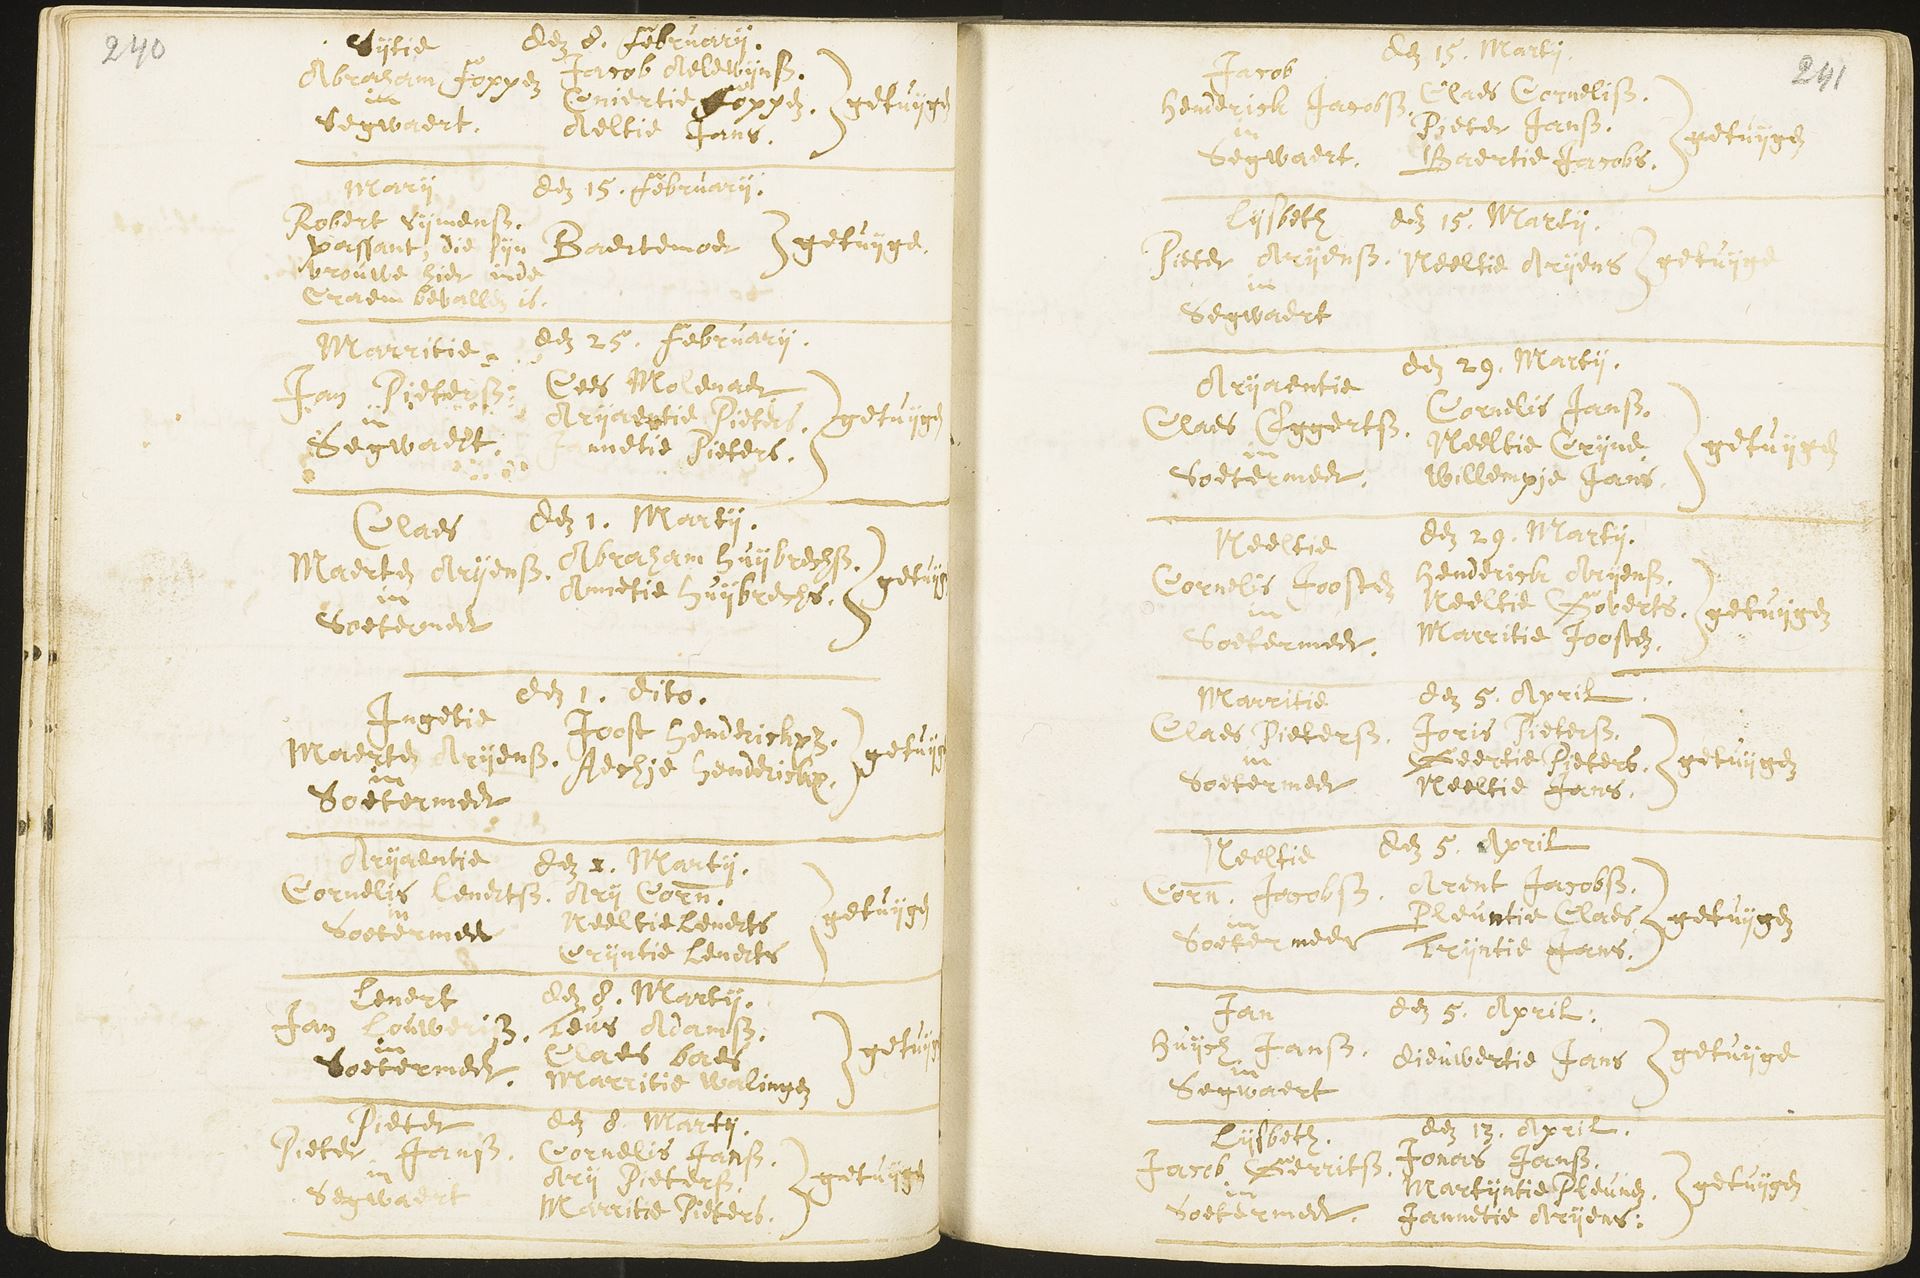 240
Sijtie den 8. february.
Abraham foppen Jacob Aelewijnsz.
in Eniertie foppen. getuijgen
Segwaert. Aeltie Jans.
Marij den 15. february.
Robert Sijmensz.
passant, die sijn Baertemoer getuijge.
vrouwe hier inde
Craem bevallen is.
Marritie den 25. february.
Jan Pietersz: Cees Molenaer
in Arijaentie Pieters. getuijgen
Segwaert. Jannetie Pieters.
Claes den 1. Martij.
Maerten Arijensz. Abraham huijbrechsz.
in Annetie huijbrechs. getuijg
Soetermeer
den 1. dito.
Ingetie Joost henderickxz.
Maerten Arijensz. Aechje henderickx. getuijg
in
Soetermeer
Arijaentie den 1. Martij.
Cornelis Lenertsz. Arij Corn.
in Neeltie Lenerts getuijgen
Soetermeer Crijntie Lenerts
Lenert den 8. Martij.
Jan Louwerisz. Teus Adamsz.
in Claes baes getuijg
Soetermeer. Marritie walingen
Pieter den 8. Martij.
Pieter Jansz. Cornelis Jansz.
in Arij Pietersz. getuijgen
Segwaert Marritie Pieters.
241
den 15. Martij.
Jacob Claes Cornelisz.
Henderick Jacobsz. Pieter Jansz. getuijgen
in
Segwaert. Baertie Jacobs.
Lijsbeth den 15. Martij.
Pieter Arijensz. Neeltie Arijens getuijge
in
Segwaert
den 29. Martij.
Arijaentie Cornelis Jansz.
Claes Eggertsz. Neeltie Crijne. getuijgen
in
Soetermeer. Willempje Jans.
Neeltie den 29. Martij.
Cornelis Joosten henderick Arijensz.
in Neeltie Goverts. getuijgen
Soetermeer. Marritie Joosten.
Marritie den 5. April
Claes Pietersz. Joris Pietersz.
in Geertie Pieters. getuijgen
Soetermeer Neeltie Jans.
Neeltie den 5. April
Corn. Jacobsz. Arent Jacobsz.
in Pleuntie Claes getuijgen
Soetermeer Trijntie Jans.
Jan den 5. April.
Huijch Jansz. dieuwertie Jans getuijge
in
Segwaert
Lijsbeth. den 13. April.
Jacob Gerritsz. Jonas Jansz.
in Martijntie Pleunen. getuijgen
Soetermeer. Jannetie Arijens: